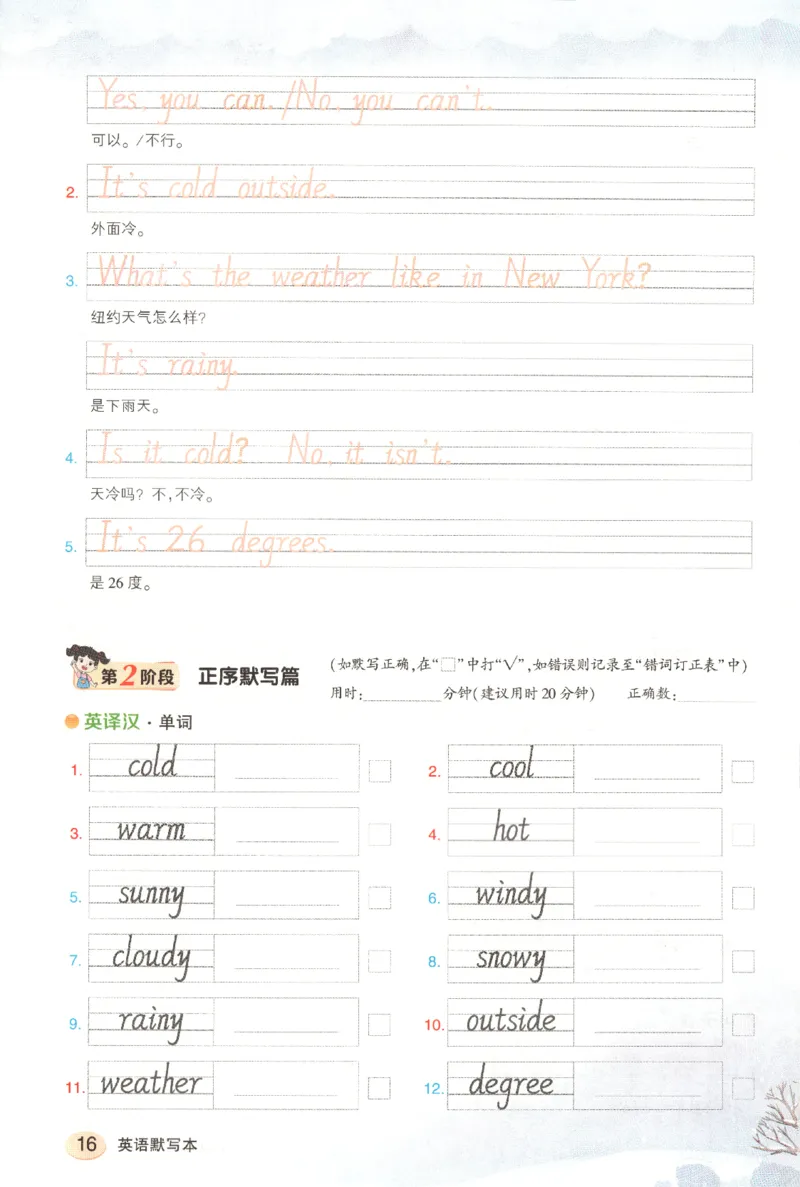 Yes, you can. /No, you can't.
可以。/不行。
2. It's cold outside.
外面冷。
3. What's the weather like in New York?
纽约天气怎么样?
It's rainy.
是下雨天。
4. Is it cold? No, it isn't.
天冷吗? 不,不冷。
5. It's 26 degrees.
是 26 度。
第2阶段 正序默写篇 (如默写正确,在“□”中打“√”,如错误则记录至“错词订正表”中)
用时:________分钟(建议用时 20 分钟) 正确数:________
英译汉·单词
1. cold 2. cool
3. warm 4. hot
5. sunny 6. windy
7. cloudy 8. snowy
9. rainy 10. outside
11. weather 12. degree
16 英语默写本